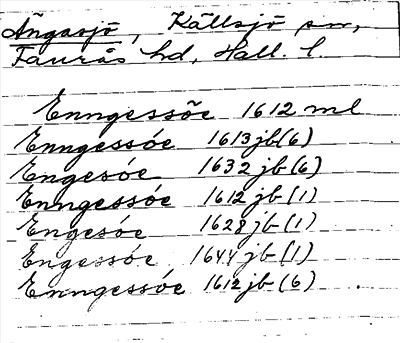 Ängasjö, Källsjö sn,
Faurås hd, Hall. l.
Enngessöe 1612 ml
Enngessóe 1613 jb (6)
Engesóe 1632 jb (6)
Enngessóe 1612 jb (1)
Engesóe 1628 jb (1)
Engessóe 1644 jb (1)
Enngessóe 1612 jb (6)